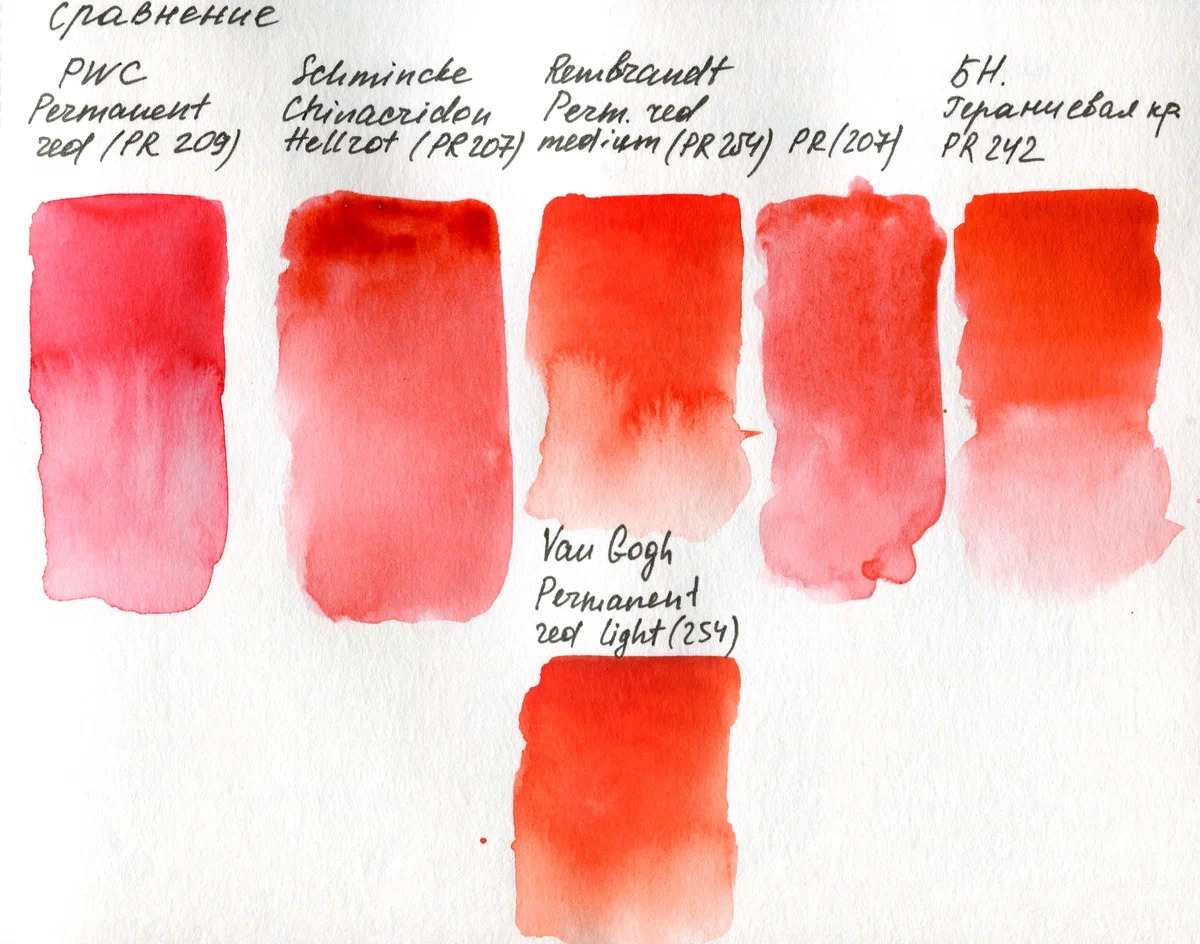 Сравнение
PWC
Permanent
red (PR 209)
Schmincke
Chinacridon
Hellrot (PR207)
Rembrandt
Perm. red
medium (PR254)
PR(207)
БН.
Гераниевая кр
PR242
Van Gogh
Permanent
red light (254)